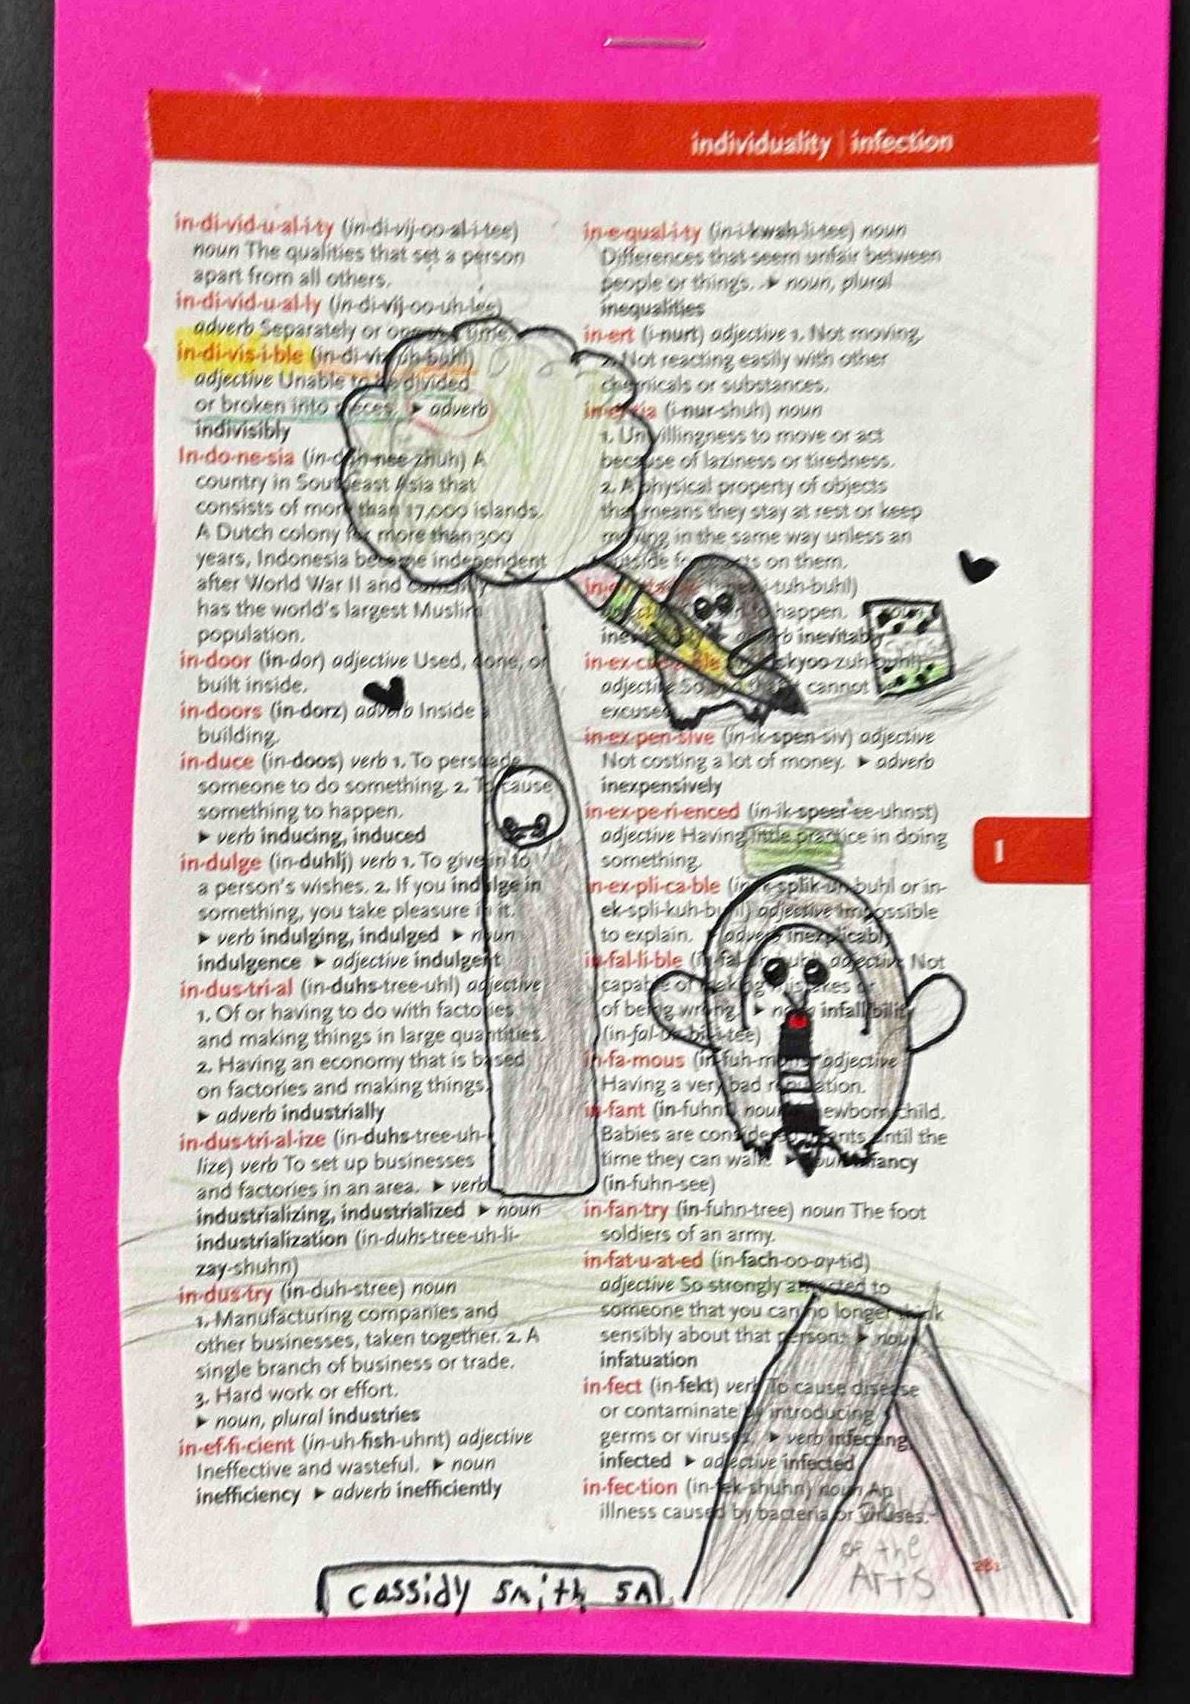 individuality | infection
in·di·vid·u·al·i·ty (in-di-vij-oo-al-i-tee)
noun The qualities that set a person
apart from all others.
in·di·vid·u·al·ly (in-di-vij-oo-uh-lee)
adverb Separately or one at a time.
in·di·vis·i·ble (in-di-viz-uh-buhl)
adjective Unable to be divided
or broken into pieces. ▶ adverb
indivisibly
In·do·ne·sia (in-duh-nee-zhuh) A
country in Southeast Asia that
consists of more than 17,000 islands.
A Dutch colony for more than 300
years, Indonesia became independent
after World War II and currently
has the world's largest Muslim
population.
in·door (in-dor) adjective Used, done, or
built inside.
in·doors (in-dorz) adverb Inside a
building.
in·duce (in-doos) verb 1. To persuade
someone to do something. 2. To cause
something to happen.
▶ verb inducing, induced
in·dulge (in-duhlj) verb 1. To give in to
a person's wishes. 2. If you indulge in
something, you take pleasure in it.
▶ verb indulging, indulged ▶ noun
indulgence ▶ adjective indulgent
in·dus·tri·al (in-duhs-tree-uhl) adjective
1. Of or having to do with factories
and making things in large quantities.
2. Having an economy that is based
on factories and making things.
▶ adverb industrially
in·dus·tri·al·ize (in-duhs-tree-uh-
lize) verb To set up businesses
and factories in an area. ▶ verb
industrializing, industrialized ▶ noun
industrialization (in-duhs-tree-uh-li-
zay-shuhn)
in·dus·try (in-duh-stree) noun
1. Manufacturing companies and
other businesses, taken together. 2. A
single branch of business or trade.
3. Hard work or effort.
▶ noun, plural industries
in·ef·fi·cient (in-uh-fish-uhnt) adjective
Ineffective and wasteful. ▶ noun
inefficiency ▶ adverb inefficiently
in·e·qual·i·ty (in-i-kwah-li-tee) noun
Differences that seem unfair between
people or things. ▶ noun, plural
inequalities
in·ert (i-nurt) adjective 1. Not moving.
2. Not reacting easily with other
chemicals or substances.
in·er·tia (i-nur-shuh) noun
1. Unwillingness to move or act
because of laziness or tiredness.
2. A physical property of objects
that means they stay at rest or keep
moving in the same way unless an
outside force acts on them.
(in-ev-i-tuh-buhl)
to happen.
inevitably
in·ex·cus·able skyoo-zuh-buhl)
adjective So cannot
excused
in·ex·pen·sive (in-ik-spen-siv) adjective
Not costing a lot of money. ▶ adverb
inexpensively
in·ex·pe·ri·enced (in-ik-speer-ee-uhnst)
adjective Having little practice in doing
something.
in·ex·pli·ca·ble (in-ik-splik-uh-buhl or in-
ek-spli-kuh-buhl) adjective Impossible
to explain. ▶ adverb inexplicably
in·fal·li·ble (in-fal-uh-buhl) adjective Not
capable of making mistakes or
of being wrong. ▶ noun infallibility
(in-fal-uh-bil-i-tee)
in·fa·mous (in-fuh-muhs) adjective
Having a very bad reputation.
in·fant (in-fuhnt) noun A newborn child.
Babies are considered infants until the
time they can walk. ▶ noun infancy
(in-fuhn-see)
in·fan·try (in-fuhn-tree) noun The foot
soldiers of an army.
in·fat·u·at·ed (in-fach-oo-ay-tid)
adjective So strongly attracted to
someone that you can no longer think
sensibly about that person. ▶ noun
infatuation
in·fect (in-fekt) verb To cause disease
or contaminate by introducing
germs or viruses. ▶ verb infecting,
infected ▶ adjective infected
in·fec·tion (in-fek-shuhn) noun An
illness caused by bacteria or viruses.
I
of the
Arts
281
cassidy smith 5A